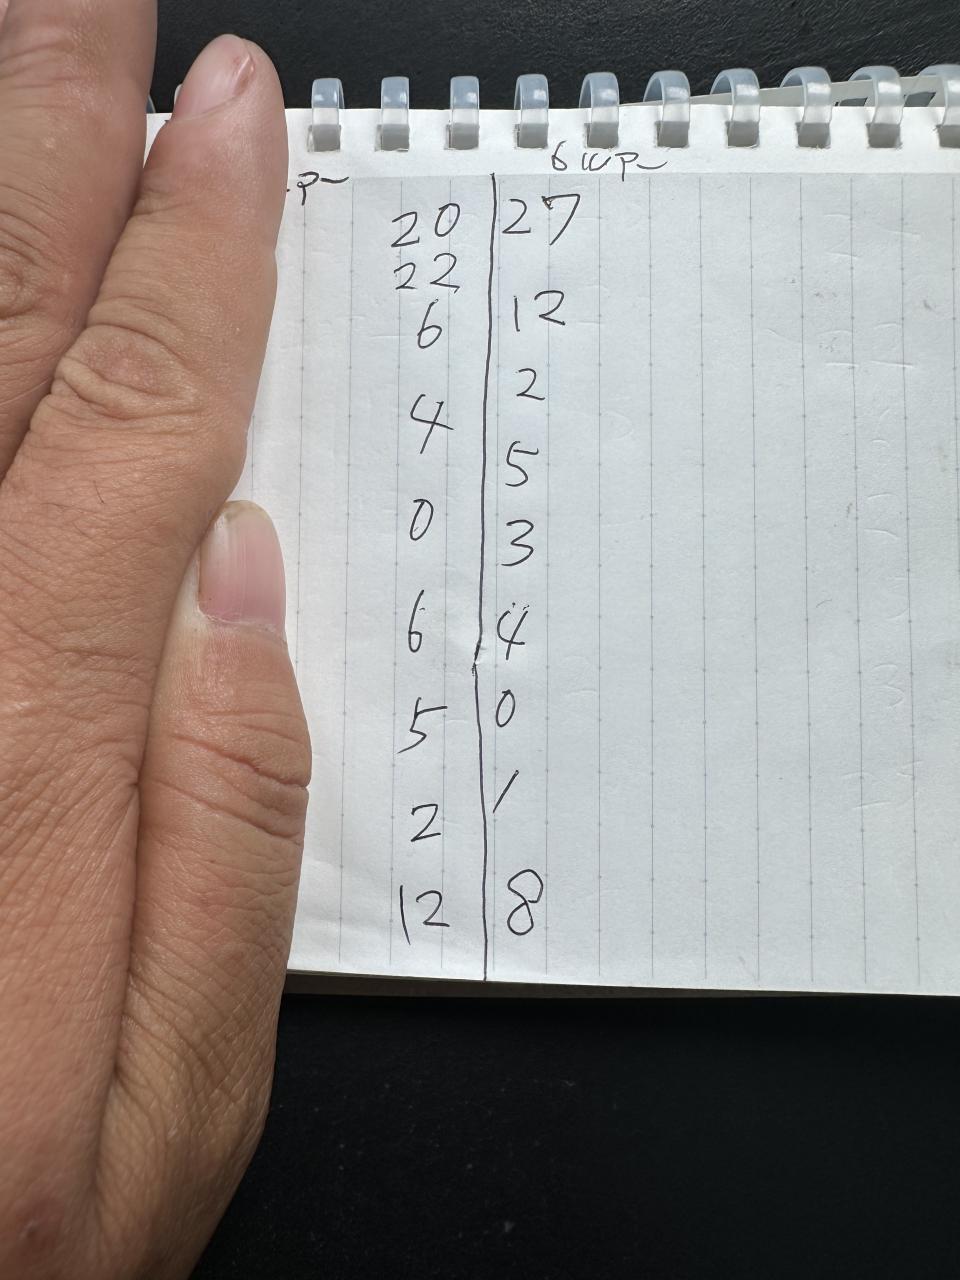 20 27
22
6 12
2
4
5
0
3
6 4
5 0
1
2
12 8